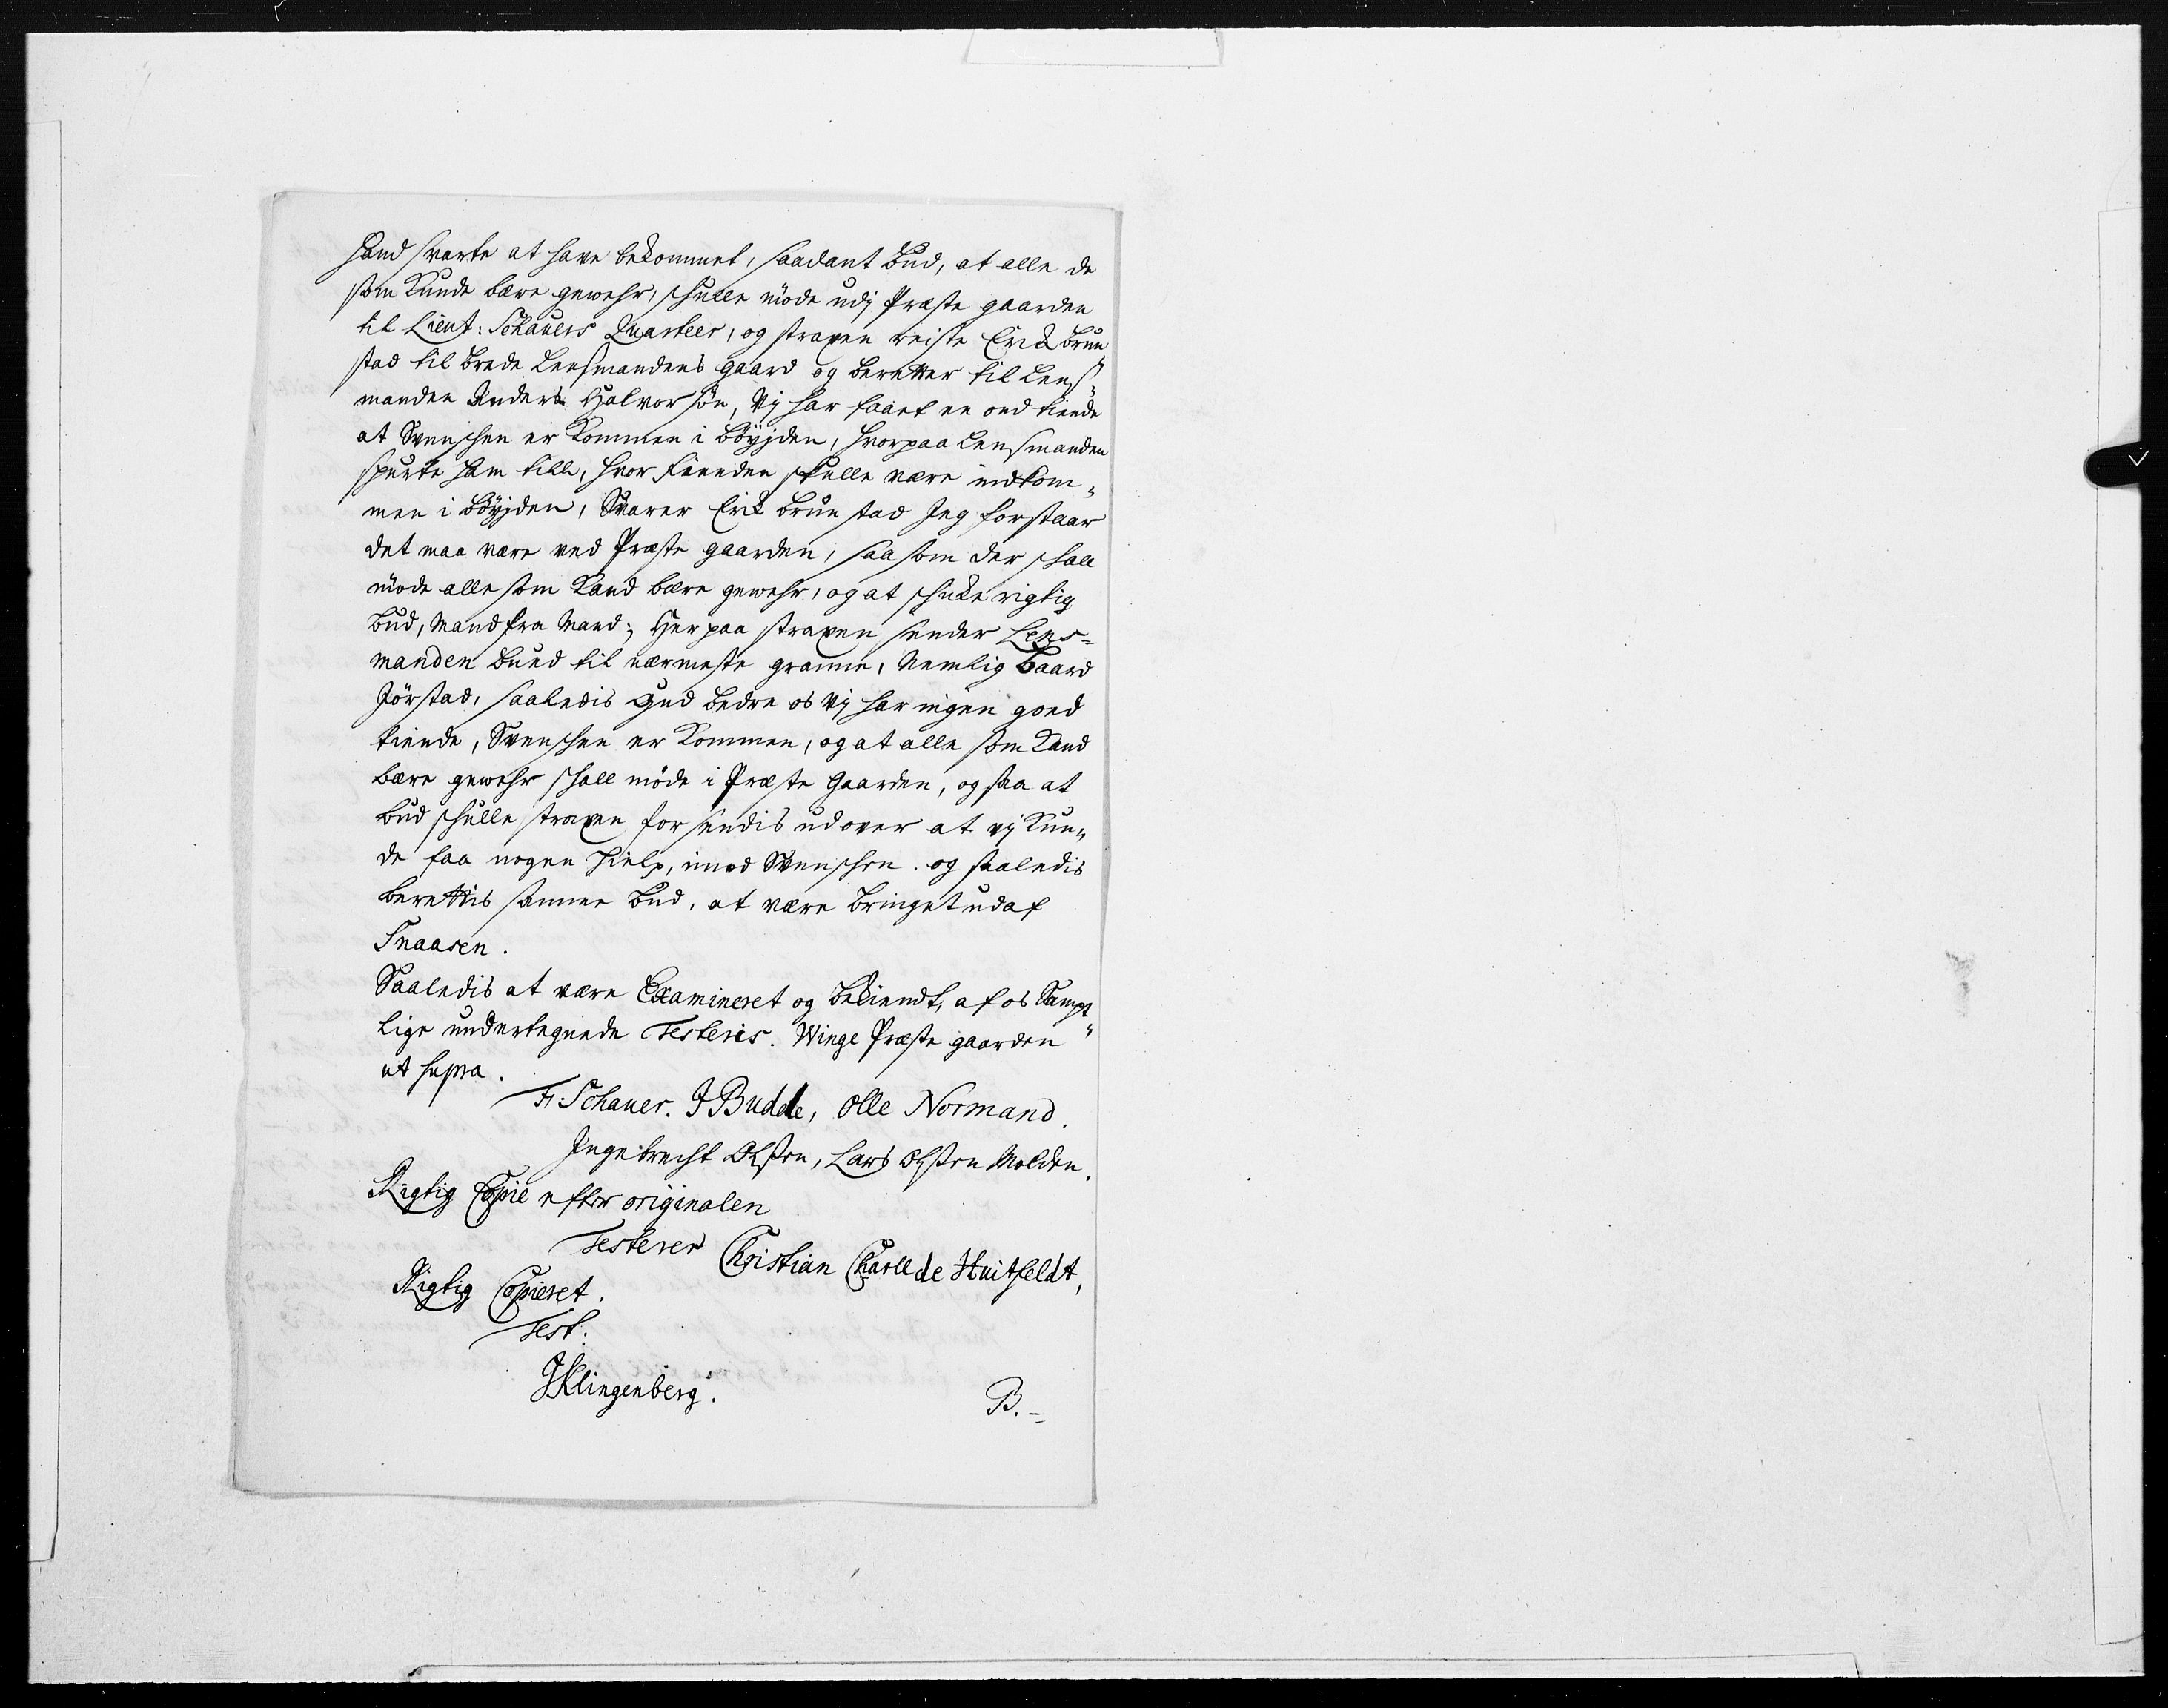 Hand svarte at have bekommet, saadant Bud, at alle de
som kunde bære gewehr, skulle møde udj Præste gaarden
til Lieut: Schauers Quarteer, og straxen reiste Erik Brun
stad til Brede Lensmandens gaard og beretter til Lens-
manden Anders Halvorsøn, Vj har faaet en ond tiende
at Svensken er kommen i Bøyden, hvorpaa Lensmanden
spurte ham till, hvor Fienden skulle være indkom-
men i Bøyden, Svarer Erik Brunstad Jeg forstaar
det maa være ved Præste gaarden, saasom der skall
møde alle som kand bære gewehr, og at skicke rigtig
Bud, Mand fra Mand; Her paa straxen sender Lens-
manden Bud til nærmeste granne, Nemlig Baard
Jørstad, saaledis Gud bedre os Vj har ingen goed
tiende, Svensken er kommen, og at alle som kand
bære gewehr skall møde i Præste Gaarden, og saa at
Bud skulle straxen forsendis udover at vj kun-
de faa nogen hielp, imod Svensken. og saaledis
berettis samme Bud, at være bringet udaf
Snaasen.
Saaledis at være Examineret og bekiendt, af os Sampt
lige undertegnede Testeris. Winge Præste gaarden
ut supra.
Fr: Schauer. J Budde, Olle Normand.
Ingebrecht Olsen, Lars Olsen Molden.
Rigtig Copie efter originalen
Testerer Christian Charll de Huitfeldt,
Rigtig Copieret.
Test:
JKlingenberg.
B.-